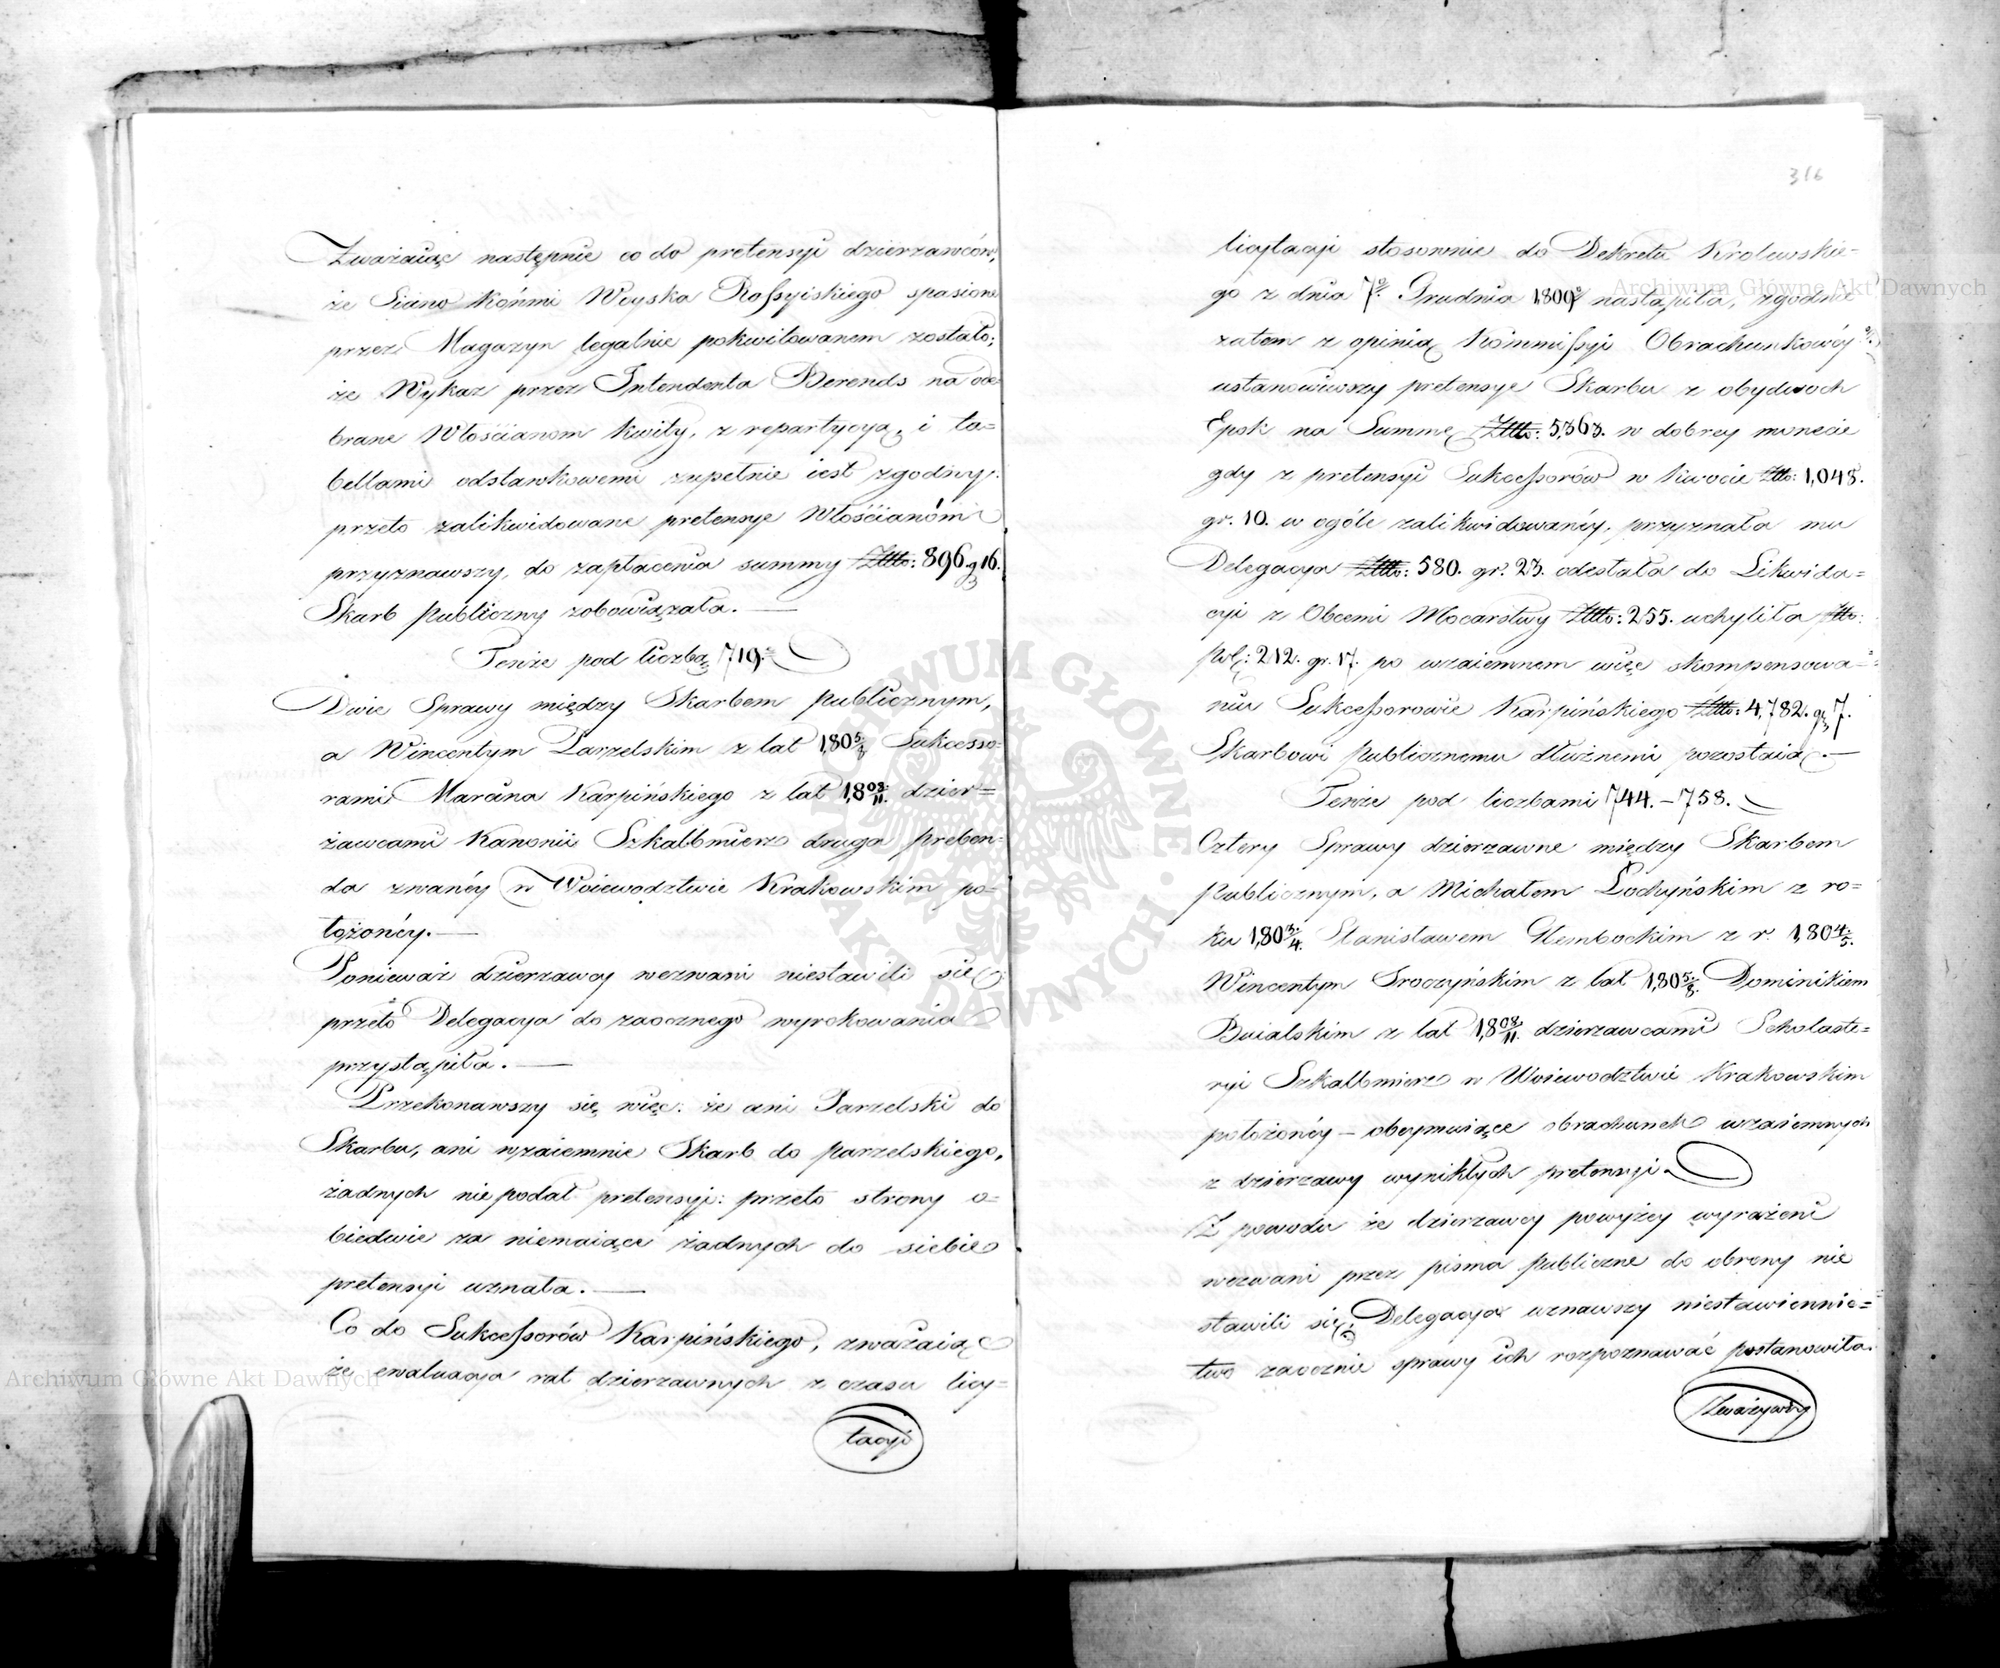 Zważaiąc następnie co do pretensyi dzierzawców,
że Siano Końmi Woyska Rossyiskiego spasione
przez Magazyn legalnie pokwitowanem zostało;
że Wykaz przez Intendenta Berends na ode-
brane Włościanom kwity, z repartycyą, i ta=
bellami odstawkowemi zupełnie iest zgodny:
przeto zalikwidowane pretensye Włościanóm
przyznawszy, do zapłacenia summy Złłto: 896. g 16.
Skarb Publiczny zobowiązała. —
Tenże pod liczbą 719.
Dwie Sprawy między Skarbem Publicznym,
a Wincentym Parzelskim z lat 180 5/8 Sukcesso-
rami Marcina Karpińskiego z lat 18 08/11. dzier=
żawcami Kanonii Szkalbmierz druga preben-
da zwanéy w Woiewodztwie Krakowskim po-
łożonéy. —
Ponieważ dzierzawcy wezwani niestawili się
przeto Delegacya do zaocznego wyrokowania
przystąpiła. —
Przekonawszy się więc: że ani Parzelski do
Skarbu, ani wzaiemnie Skarb do parzelskiego,
żadnych niepodał pretensyi: przeto strony o=
biedwie za niemaiące żadnych do siebie
pretensyi uznała. —
Co do Sukcessorów Karpińskiego, zważaiąc
że ewaluacya rat dzierzawnych z czasu licy=
tacyi
316
licytacyi stosownie do Dekretu Krolewskie-
go z dnia 7º. Grudnia 1809º nastąpiła, zgodnie
zatem z opinią Kommissyi Obrachunkowéy
ustanowiwszy pretensye Skarbu z obydwoch
Epok na Summę Złłto: 5,363. w dobrey monecie
gdy z pretensyi Sukcessorów w kwocie Złto: 1,048.
gr. 10. w ogóle zalikwidowanéy, przyznała mu
Delegacya Złłto: 580. gr. 23. odesłała do Likwida=
cyi z Obcemi Mocarstwy Złłto: 255. uchyliła Złto:
pol: 212. gr. 17. po wzaiemnem więc skompensowa=
niu Sukcessorowie Karpińskiego Złłto: 4,782. g 7.
Skarbowi Publicznemu dłużnemi pozostaią. —
Tenże pod liczbami 744. — 758.
Cztery Sprawy dzierzawne między Skarbem
Publicznym, a Michałem Łochyńskim z ro=
ku 180 3/4. Stanisławem Glembockim z r. 180 4/5.
Wincentym Sroczyńskim z lat 180 5/8. Dominikiem
Buialskim z lat 18 08/11. dzierzawcami Scholaste=
ryi Szkalbmierz w Woiewodztwie Krakowskim
położonéy — obeymuiące obrachunek wzaiemnych
z dzierzawy wynikłych pretensyi.
Z powodu że dzierzawcy powyżey wyrażeni
wezwani przez pisma publiczne do obrony nie
stawili się, Delegacya uznawszy niestawiennic=
two zaocznie sprawy ich rozpoznawać postanowiła.
Zważywszy
Archiwum Główne Akt Dawnych
Archiwum Główne Akt Dawnych
ARCHIWUM GŁÓWNE AKT DAWNYCH